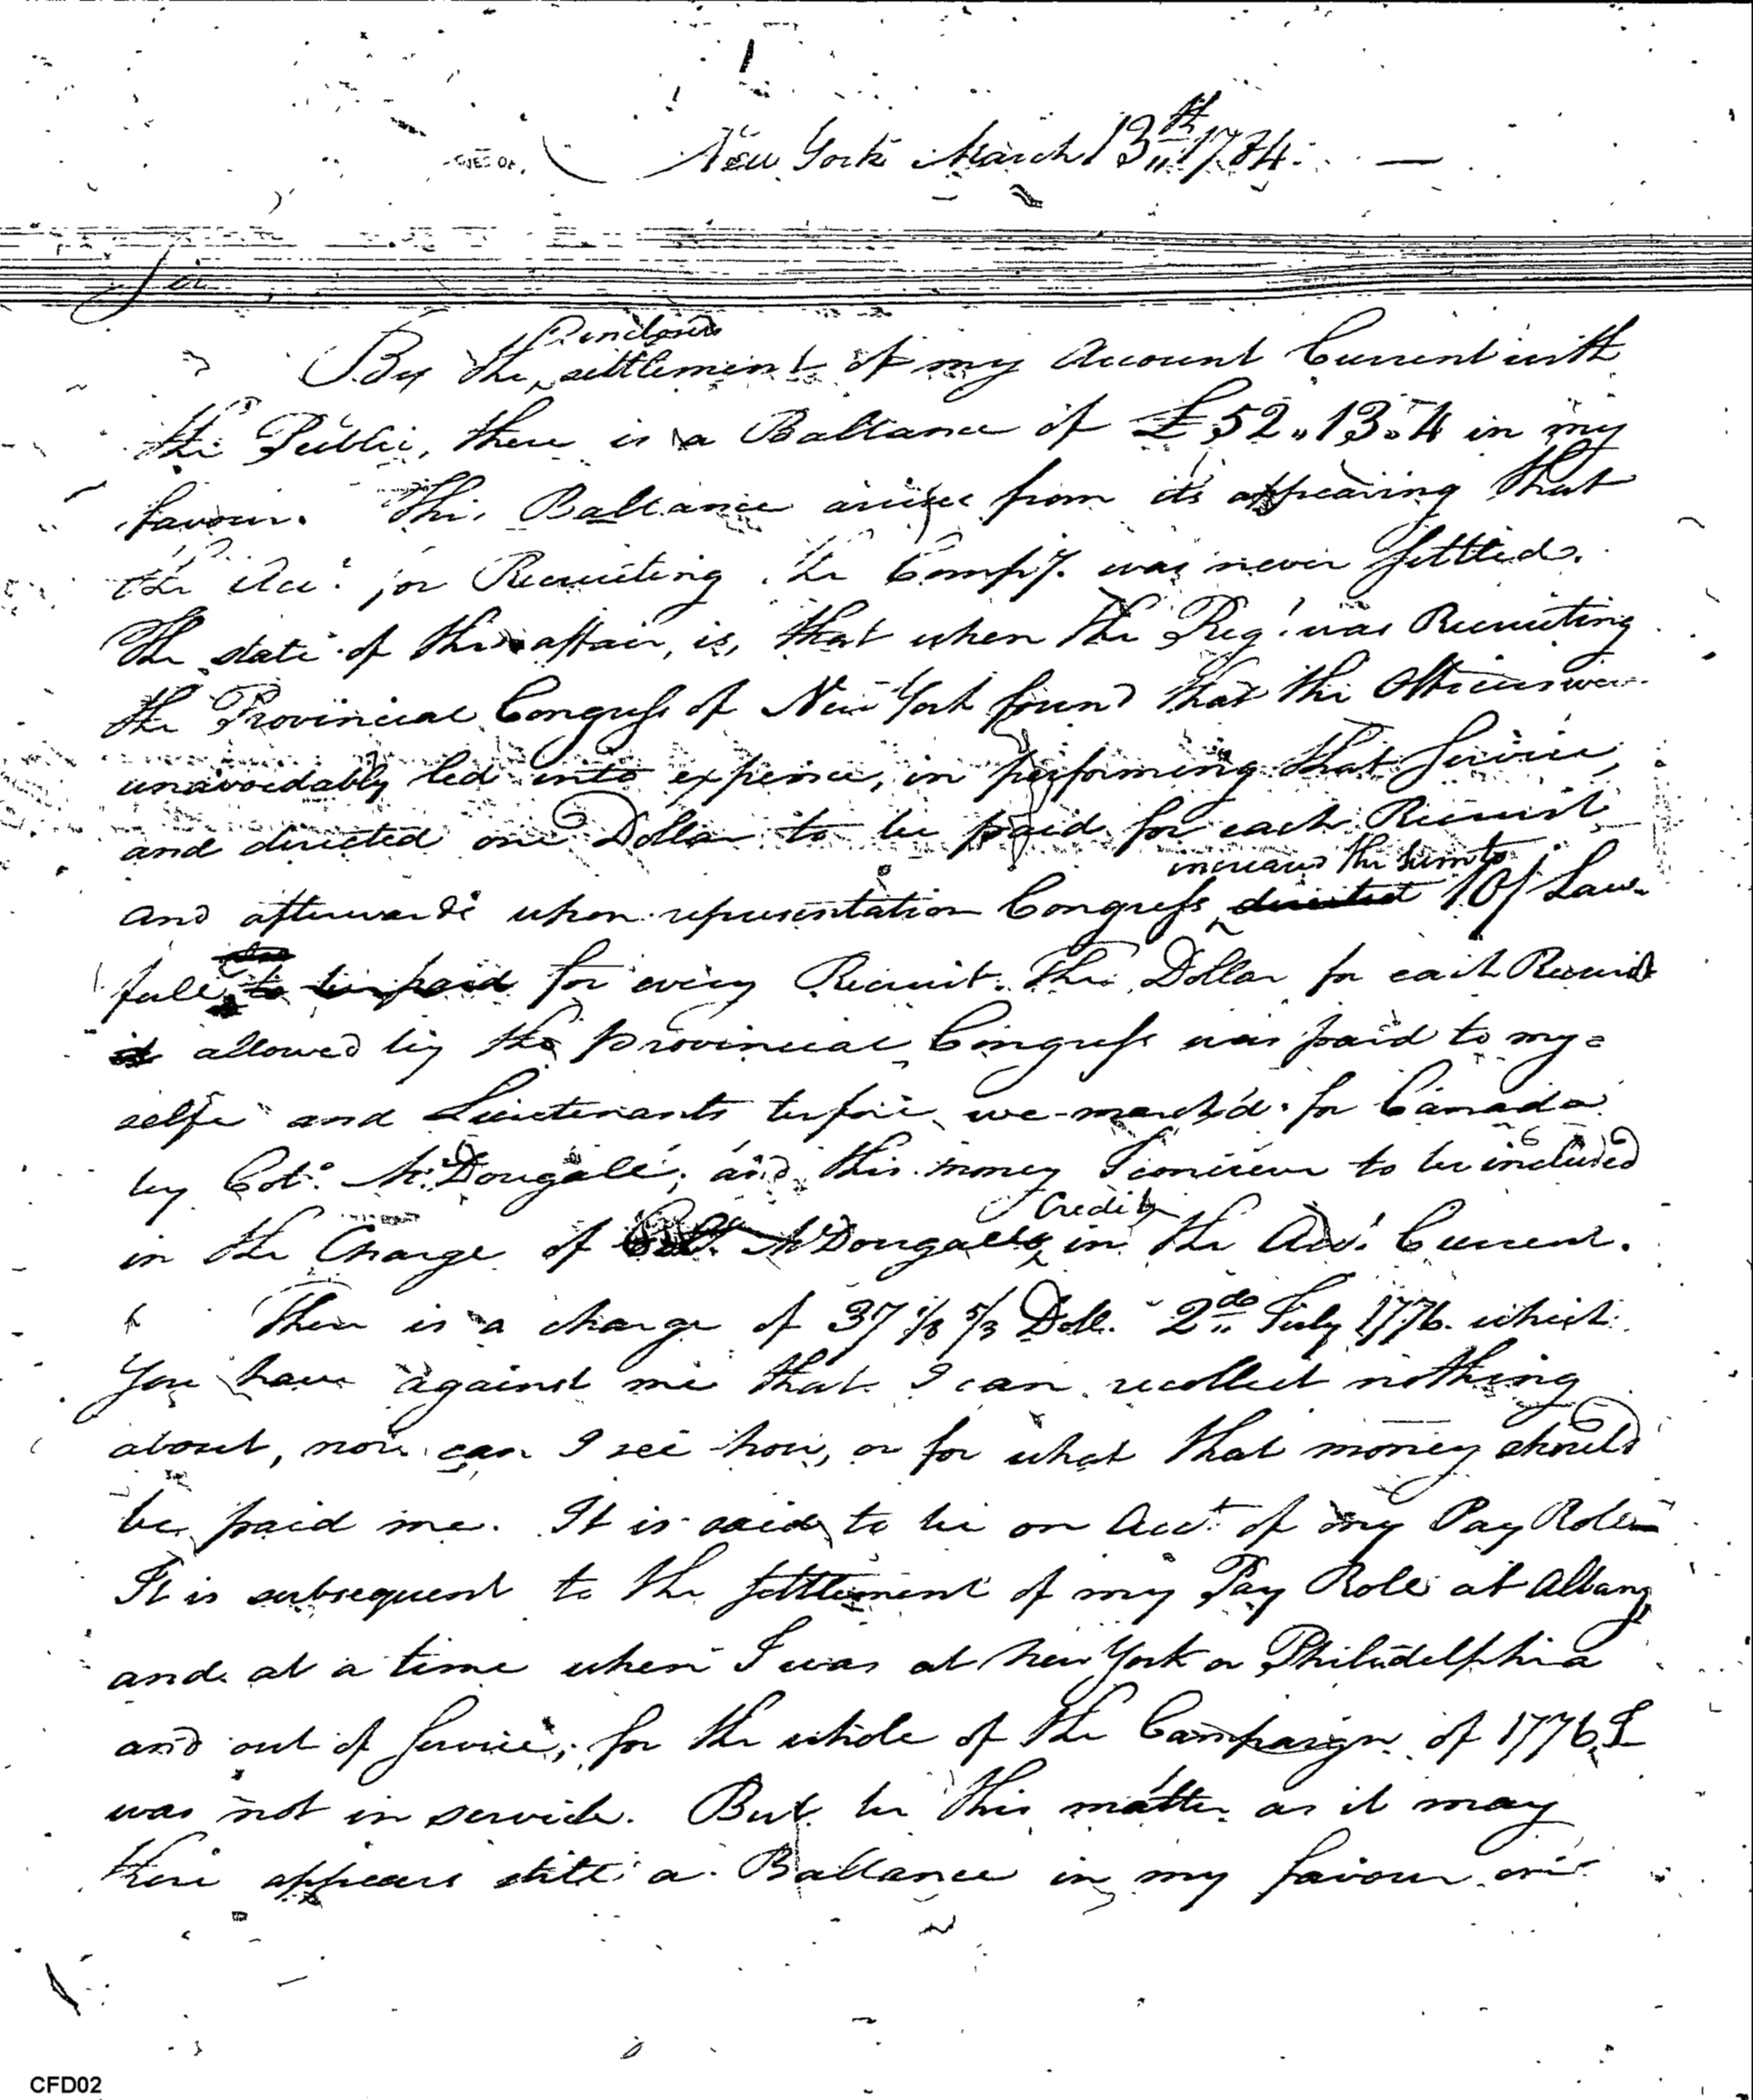 New York March 13th 1784.
Sir
By the enclosed settlement of my Account Current with
the Public, there is a Ballance of £52.13.4 in my
favour. This Ballance arises from its appearing that
the Acct. for Recruiting the Compy. was never settled.
The state of this affair, is, that when the Regt. was Recruiting
the Provincial Congress of New York found that the Officers were
unavoidably led into expence, in performing that Service,
and directed one Dollar to be paid for each Recruit
and afterwards upon representation Congress directed increased the sum to 10/ Law-
full to be paid for every Recruit. The Dollar for each Recruit
allowed by the Provincial Congress was paid to my=
selfe and Lieutenants before we march'd for Canada
by Col. McDougall; and this money I conceive to be included
in the Charge of Col. McDougalls Credit in the Acct. Current.
There is a charge of 37 Doll. 2do July 1776. which
You have against me that I can recollect nothing
about, nor can I see how, or for what that money should
be paid me. It is said to be on Acct. of my Pay Role
It is subsequent to the settlement of my Pay Role at Albany,
and at a time when I was at New York or Philadelphia
and out of Service; for the whole of the Campaign of 1776 I
was not in service. But be this matter as it may
there appears still a Ballance in my favour
CFD02